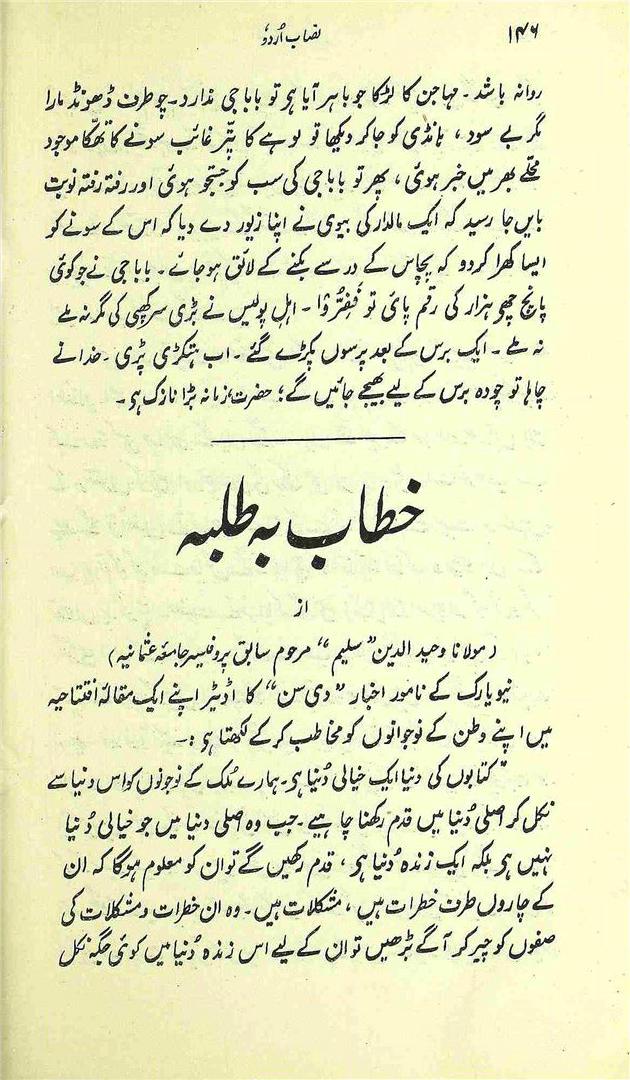 ۱۴۶
نصاب اُردو
روانہ باشد ۔ مہاجن کا لڑکا جو باہر آیا ہو تو باباجی ندارد ۔ چوطرف ڈھونڈ مارا
مگر بے سود ، ہانڈی کو جاکر دیکھا تو لوہے کا پتّر غائب سونے کا تھکّا موجود
محلّے بھر میں خبر ہوئی ، پھر تو باباجی کی سب کو جستجو ہوئی اور رفتہ رفتہ نوبت
بایں جا رسید کہ ایک مالدار کی بیوی نے اپنا زیور دے دیا کہ اس کے سونے کو
ایسا کھرا کردو کہ پچاس کے در سے بکنے کے لائق ہوجائے ۔ باباجی نے جو کوئی
پانچ چھو ہزار کی رقم پائی تو فَفِرُّوْا ۔ اہلِ پولیس نے بڑی سرکھپی کی مگر نہ ملے
نہ ملے ۔ ایک برس کے بعد پرسوں پکڑے گئے ۔ اب ہتکڑی پڑی ۔ خدا نے
چاہا تو چودہ برس کے لیے بھیجے جائیں گے ؛ حضرت، زمانہ بڑا نازک ہو ۔
خطاب بہ طلبہ
از
(مولانا وحید الدین ”سلیم“ مرحوم سابق پروفیسر جامعۂ عثمانیہ)
نیویارک کے نامور اخبار ”دی سن“ کا اڈیٹر اپنے ایک مقالۂ افتتاحیہ
میں اپنے وطن کے نوجوانوں کو مخاطب کرکے لکھتا ہو :۔
”کتابوں کی دنیا ایک خیالی دُنیا ہو ۔ ہمارے مُلک کے نوجونوں کو اس دنیا سے
نکل کر اصلی دُنیا میں قدم رکھنا چاہیے ۔ جب وہ اصلی دنیا میں جو خیالی دُنیا
نہیں ہو بلکہ ایک زندہ دُنیا ہو ، قدم رکھیں گے تو ان کو معلوم ہوگا کہ ان
کے چاروں طرف خطرات ہیں ، مشکلات ہیں ۔ وہ ان خطرات و مشکلات کی
صفوں کو چیر کر آگے بڑھیں تو ان کے لیے اس زندہ دُنیا میں کوئی جگہ نکل